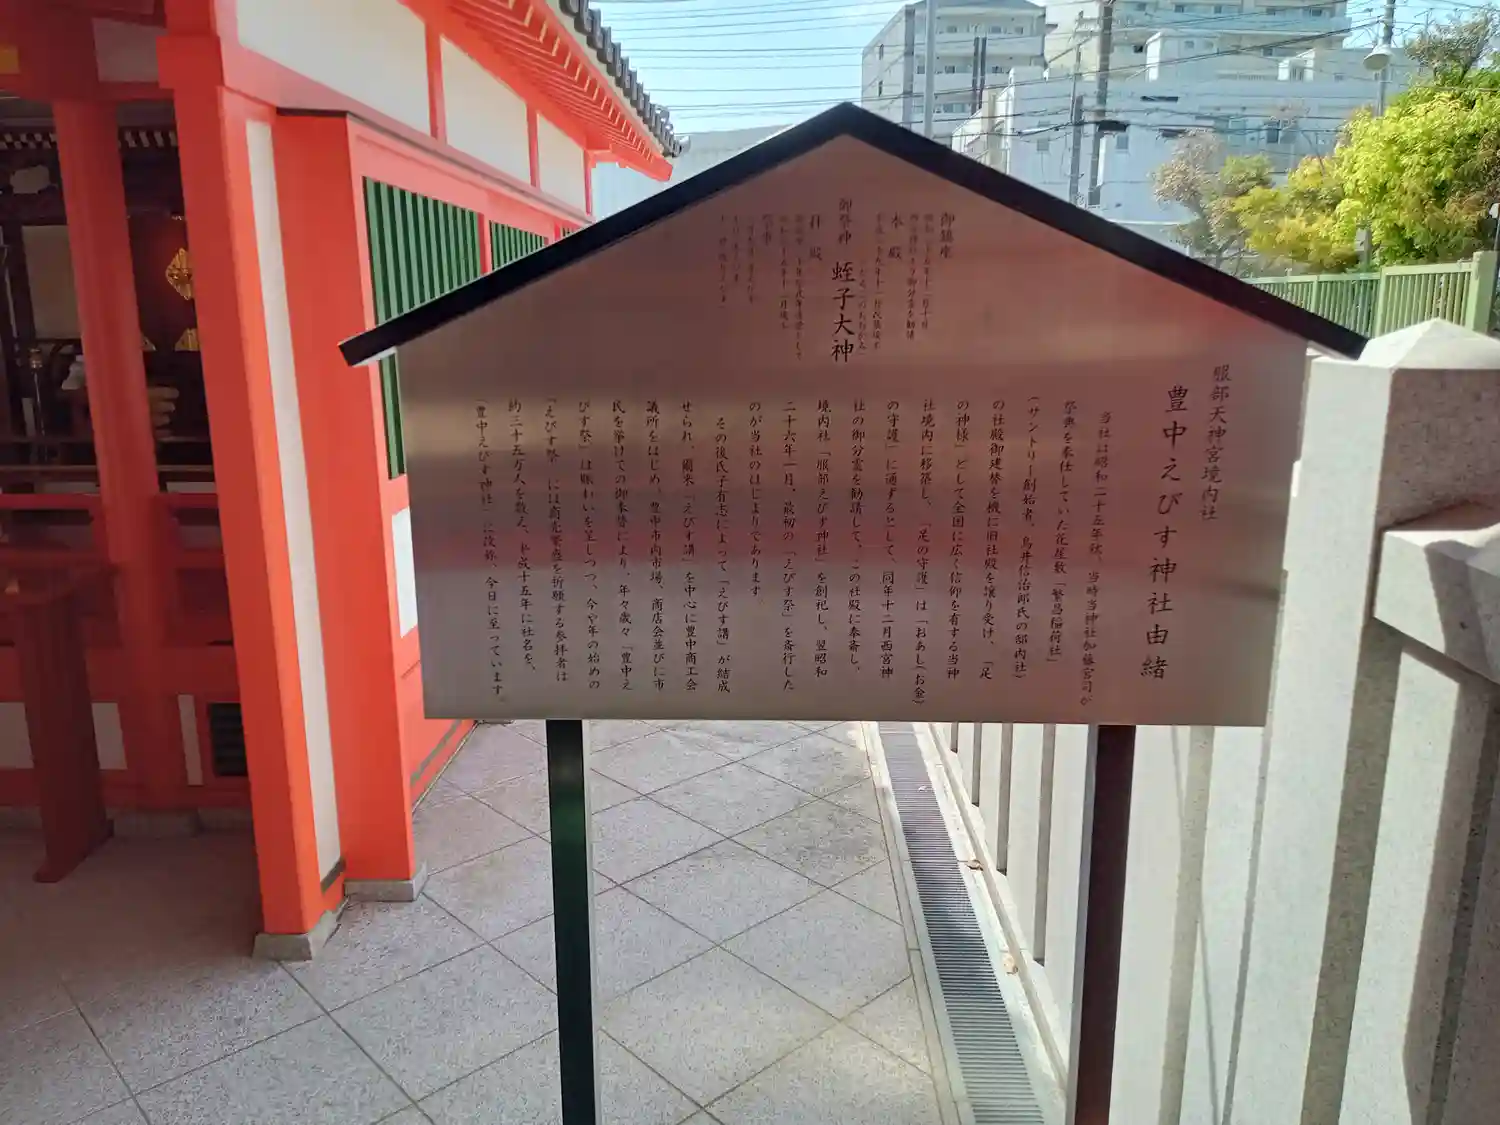 服部天神宮境内社
豊中えびす神社由緒
御鎮座
本殿
御祭神 蛭子大神
拝殿
当社は昭和二十五年秋、当時当神社加藤宮司が
祭典を奉仕していた花屋敷「繁昌稲荷社」
(サントリー創始者、鳥井信治郎氏の邸内社)
の社殿御建替を機に旧社殿を譲り受け、「足
の神様」として全国に広く信仰を有する当神
社境内に移築し、「足の守護」は「おあし(お金)
の守護」に通ずるとして、同年十二月西宮神
社の御分霊を勧請して、この社殿に奉斎し、
境内社「服部えびす神社」を創祀し、翌昭和
二十六年一月、最初の「えびす祭」を斎行した
のが当社のはじまりであります。
その後氏子有志によって「えびす講」が結成
せられ、爾来「えびす講」を中心に豊中商工会
議所をはじめ、豊中市内市場、商店会並びに市
民を挙げての御奉賛により、年々歳々「豊中え
びす祭」は賑わいを呈しつつ、今や年の始めの
「えびす祭」には商売繁盛を祈願する参拝者は
約三十五万人を数え、平成十五年に社名を、
「豊中えびす神社」に改称、今日に至っています。